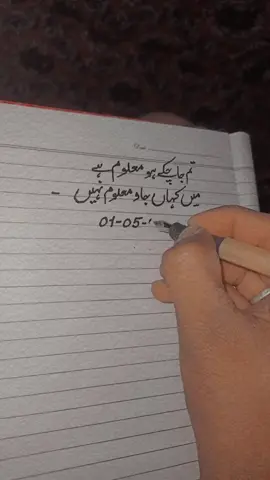 تم جا چکے ہو معلوم ہے
میں کہاں جاو معلوم نہیں -
01-05-